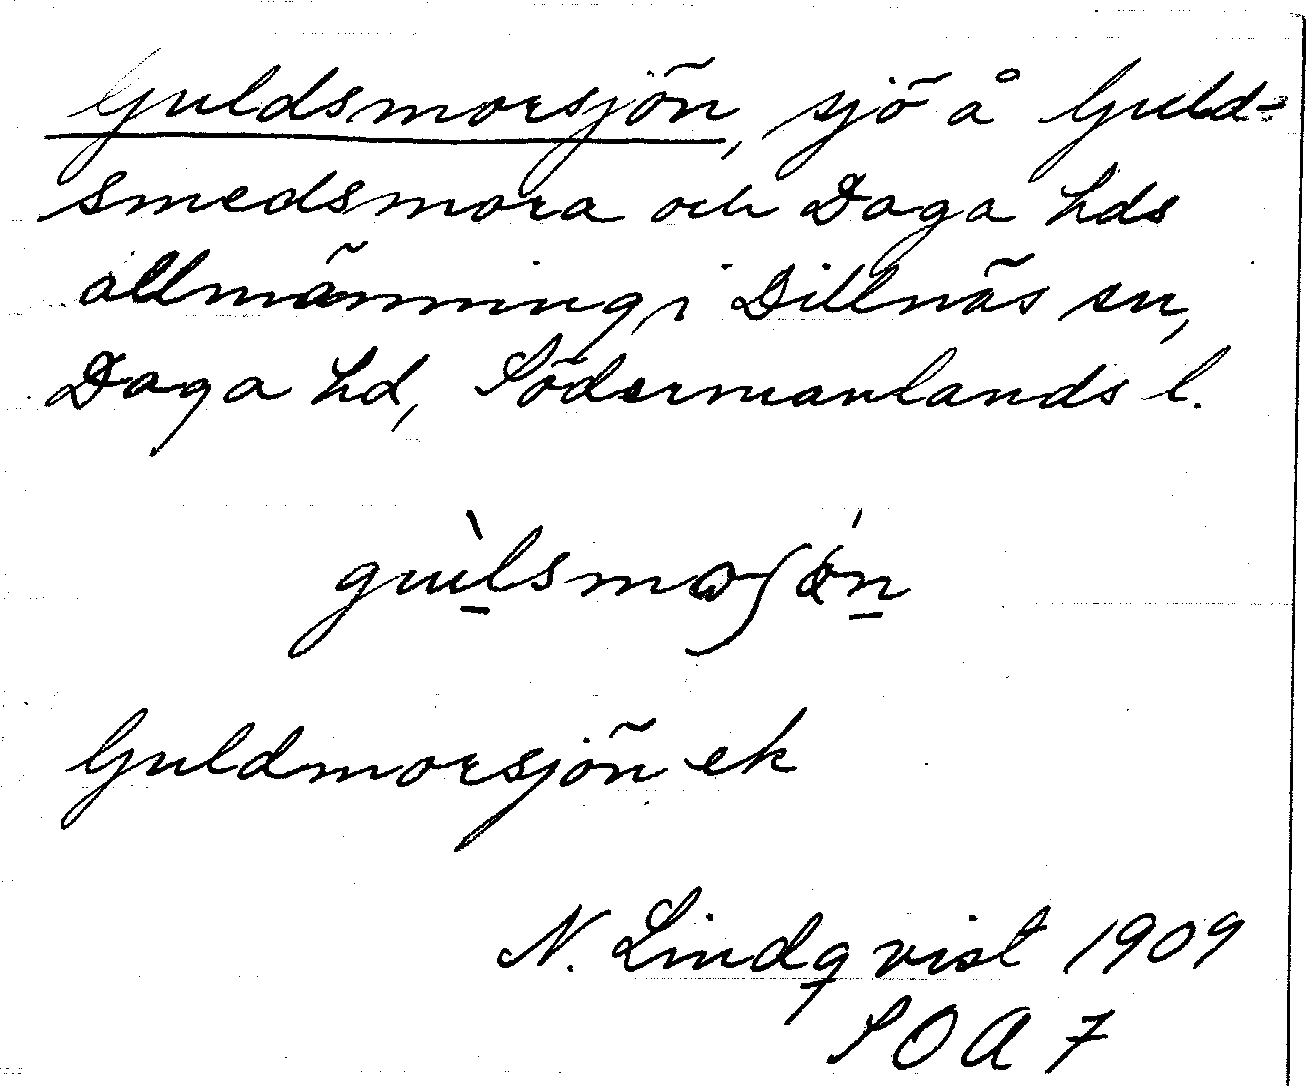 Guldsmorsjön, sjö å Guld-
smedsmora och Daga hds
allmänning i Dillnäs sn,
Daga hd, Södermanlands l.
Guldmorsjön ek
N. Lindqvist 1909
SOA 7